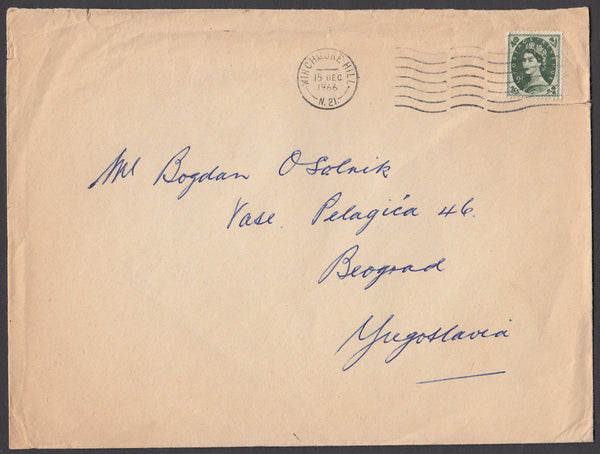 WINCHMORE HILL
15 DEC
1966
N. 21.
Mr Bogdan Osolnik
Vase Pelagića 46.
Beograd
Yugoslavia